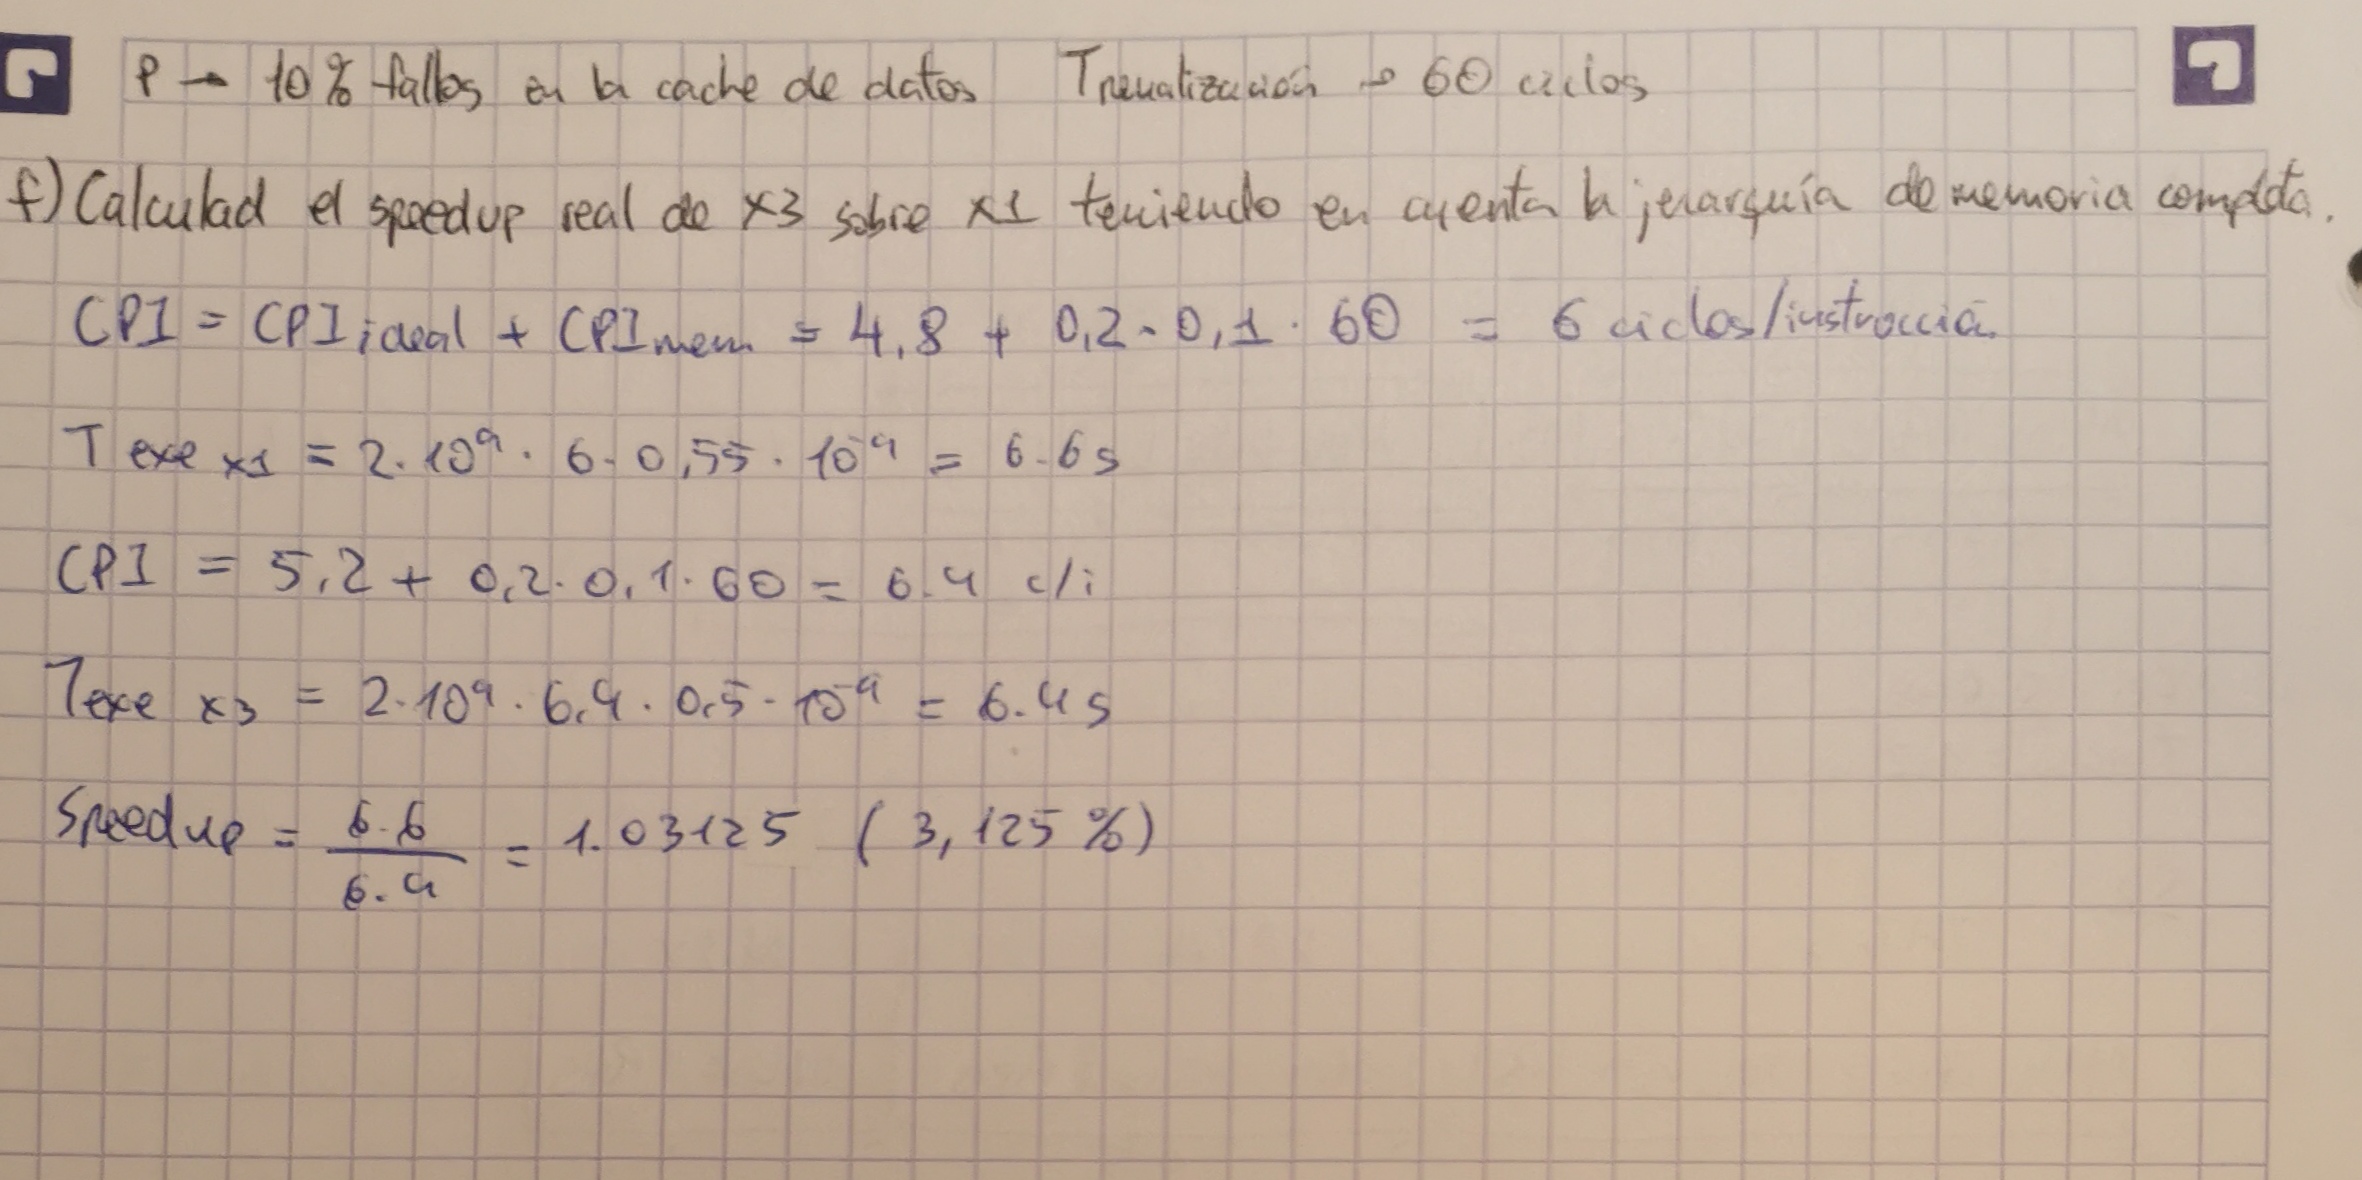 P → 10% fallos en la cache de datos Tpenalización → 60 ciclos
f) Calculad el speedup real de x3 sobre x1 teniendo en cuenta la jerarquía de memoria completa.
CPI = CPI ideal + CPI mem = 4,8 + 0,2 · 0,1 · 60 = 6 ciclos/instrucción
T exe x1 = 2 · 10⁹ · 6 · 0,55 · 10⁻⁹ = 6.6s
CPI = 5,2 + 0,2 · 0,1 · 60 = 6.4 c/i
Texe x3 = 2 · 10⁹ · 6,4 · 0,5 · 10⁻⁹ = 6.4s
Speedup = 6.6 / 6.4 = 1.03125 (3,125%)